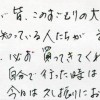 い皆、このおこもりの大
知っている人たちが
、必ず買ってきてくれ
自分で行った時は
今日は久し振りにお